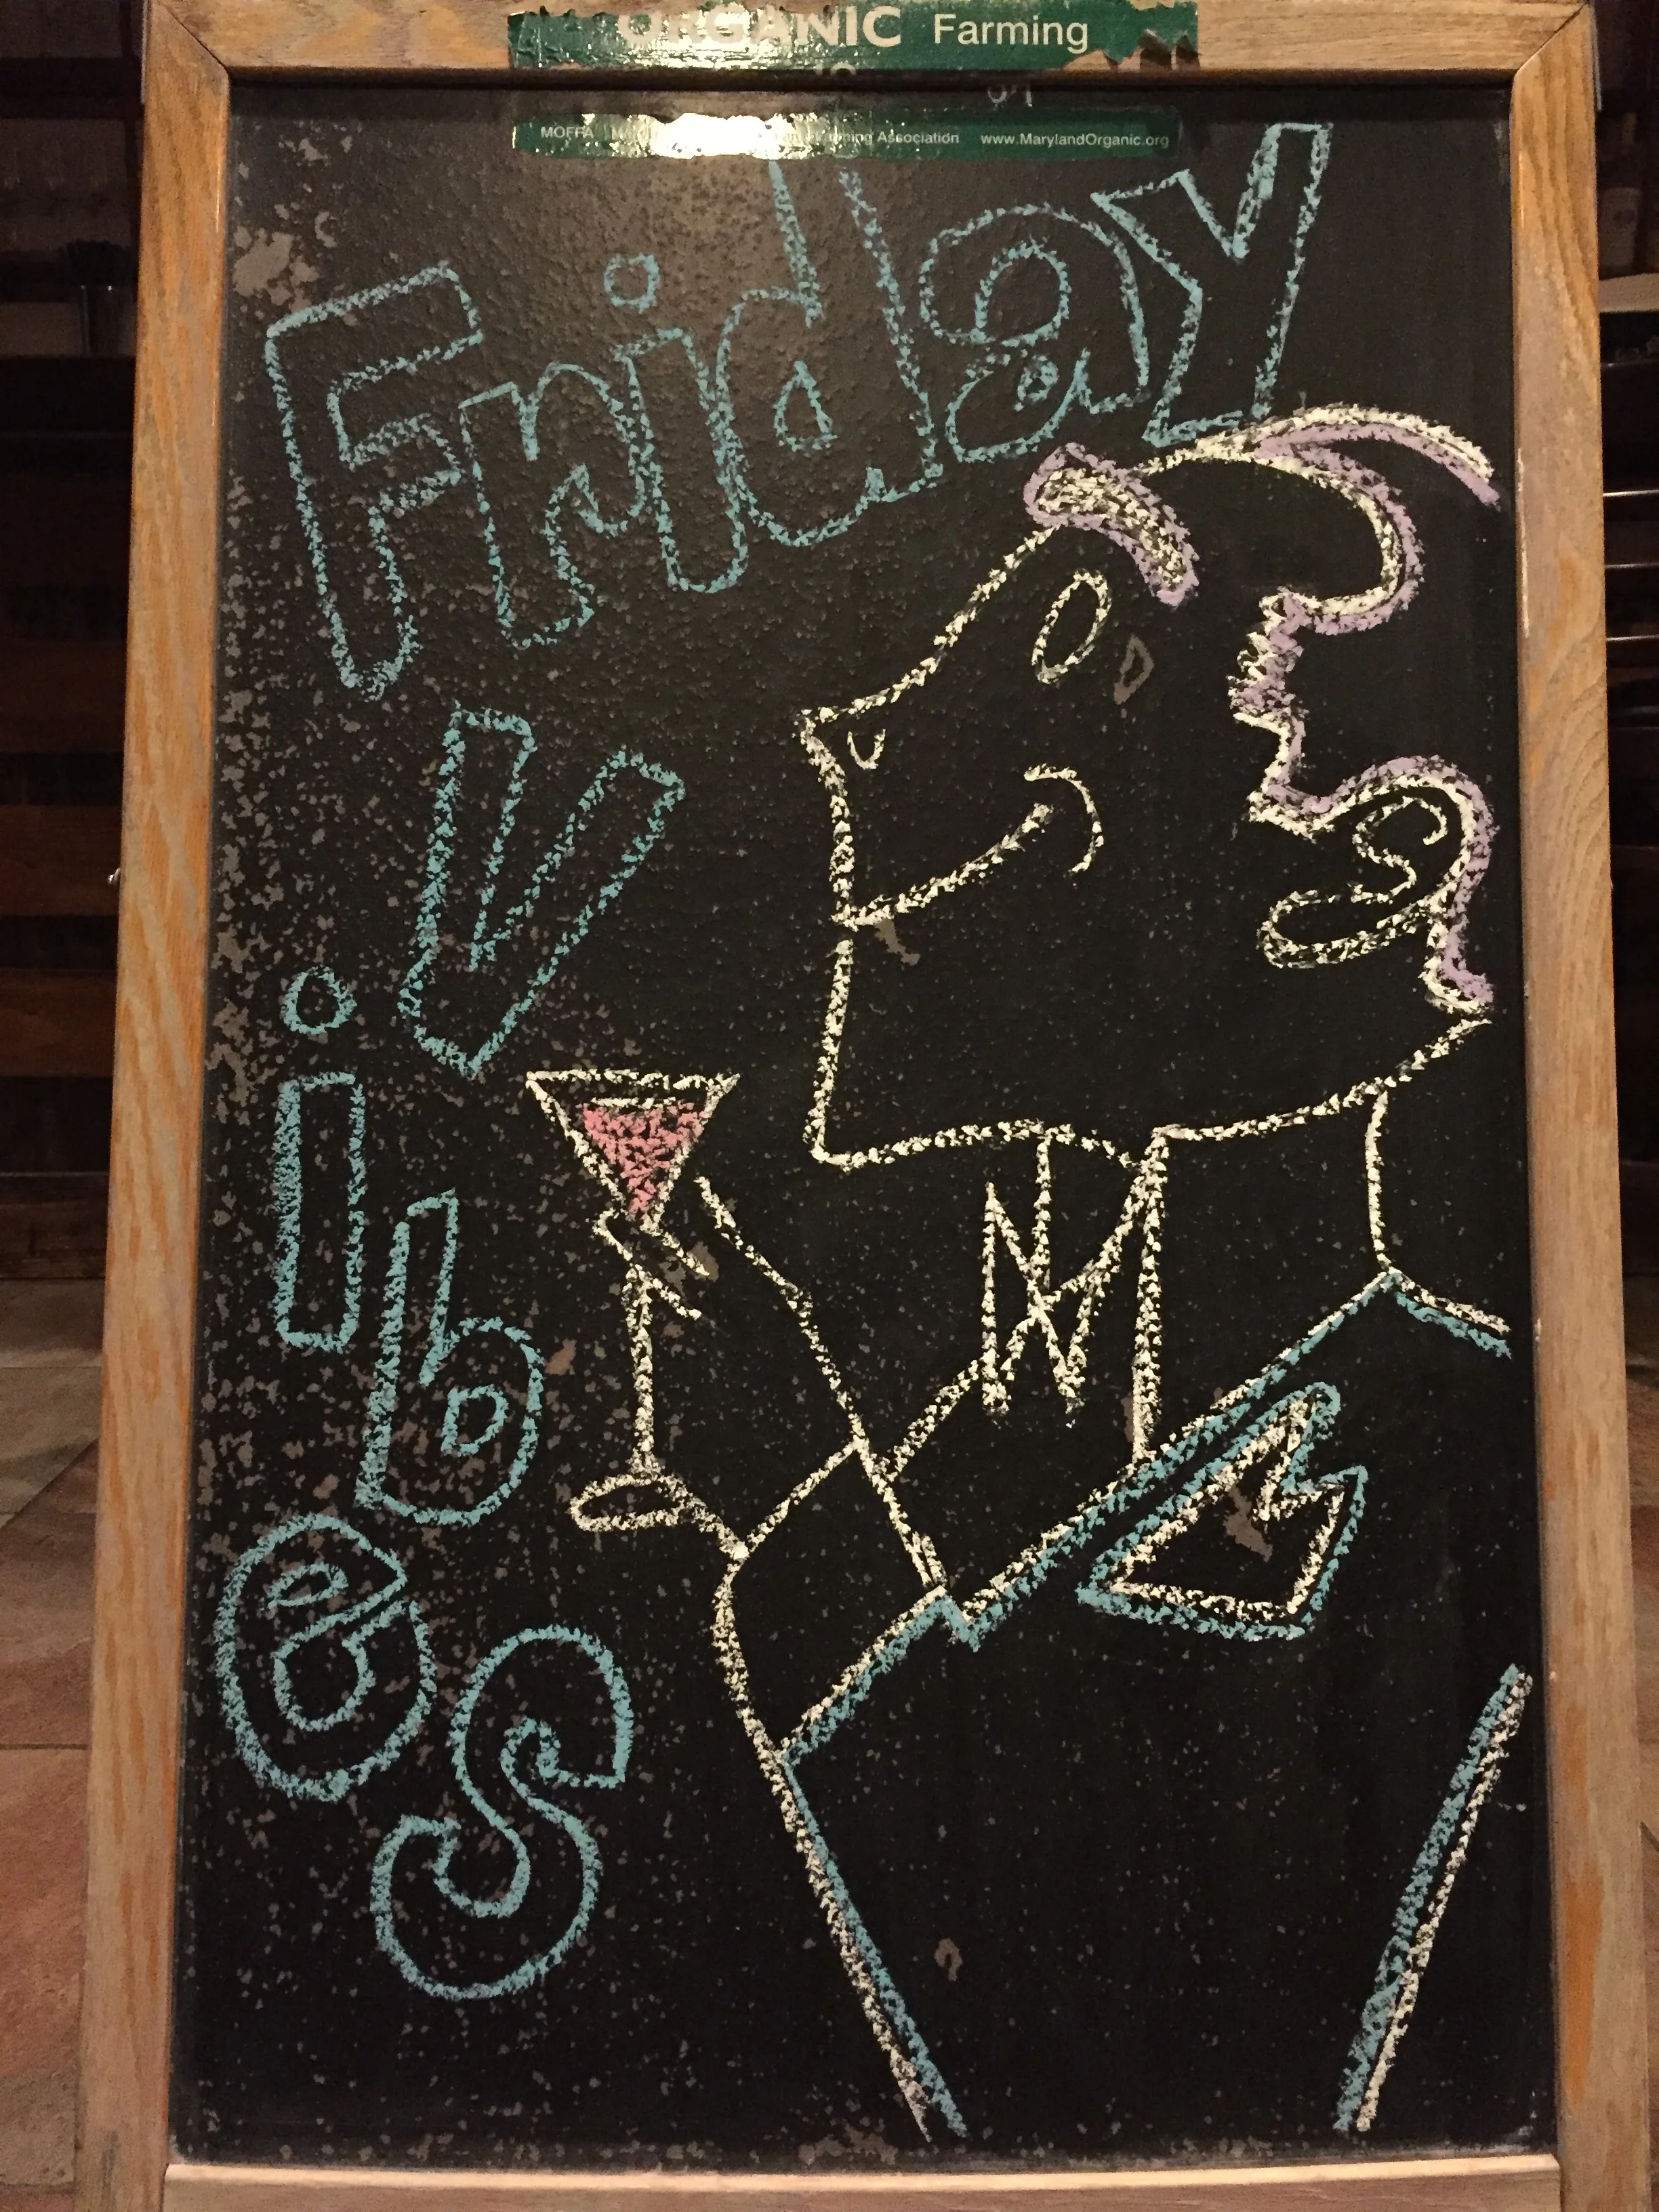 ORGANIC Farming
MOFFA Farming Association www.MarylandOrganic.org
Friday
Vibes